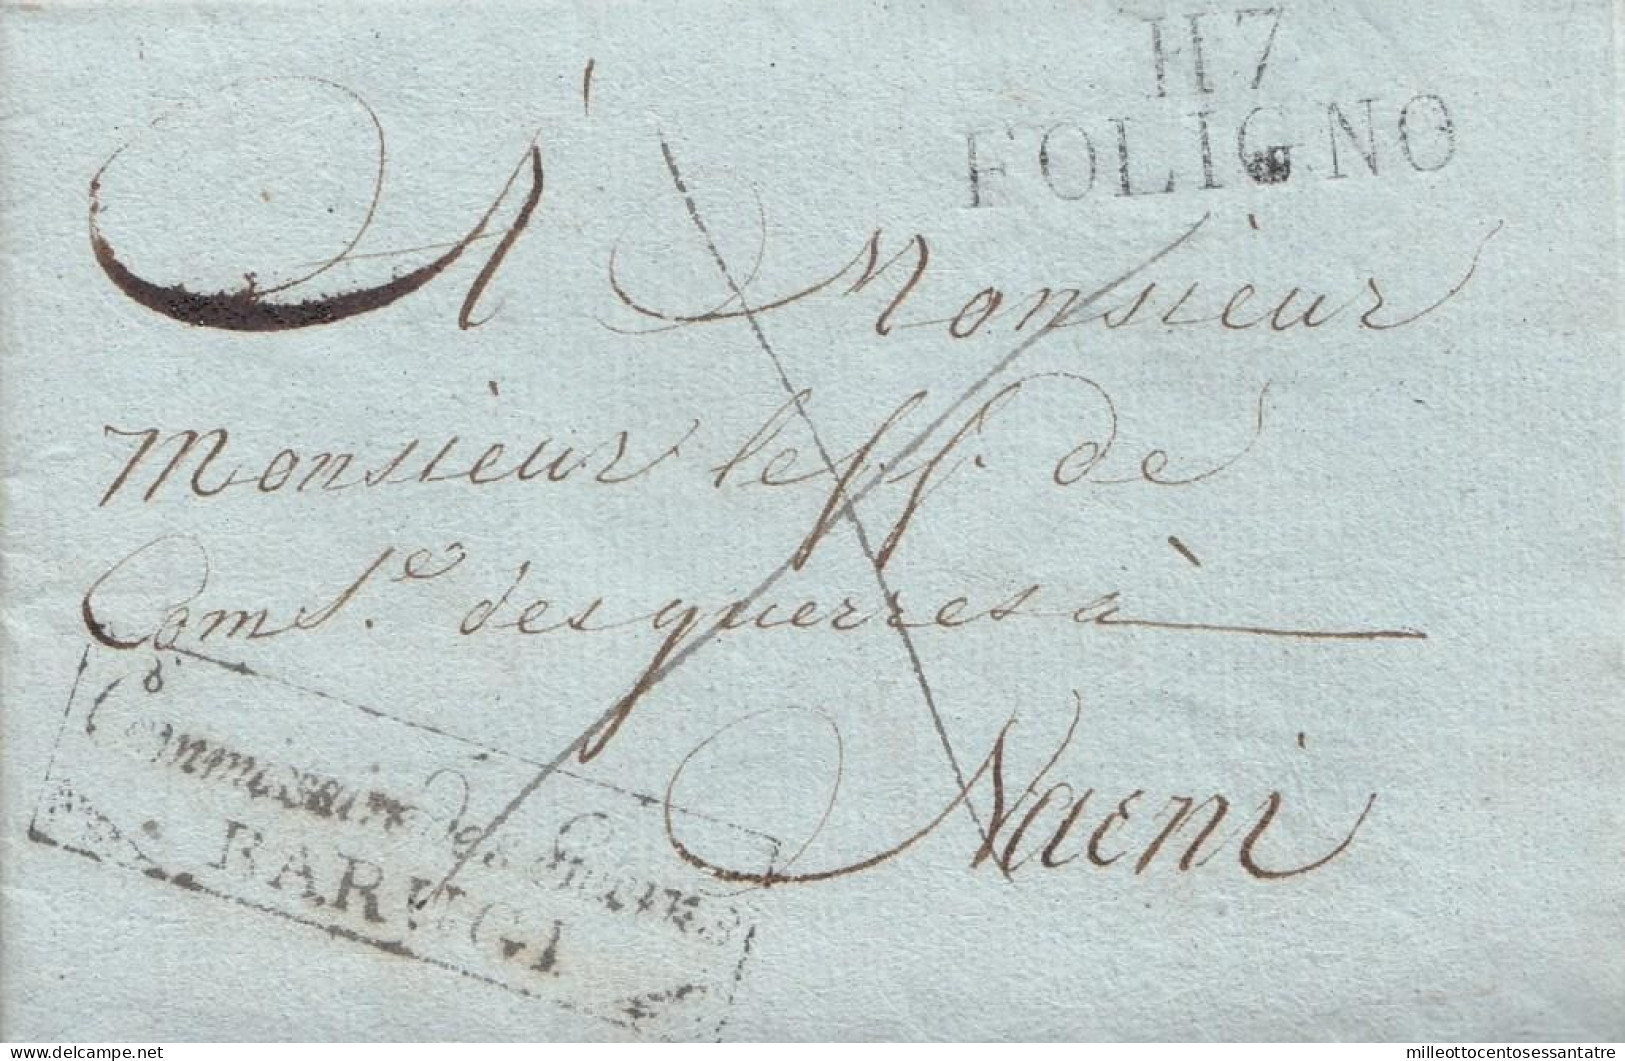 117
FOLIGNO
À Monsieur
Monsieur le ff. de
Comss.e des guerres à
Naeni
Commissaire des Guerres
BARUGI
delcampe.net
milleottocentosessantatre